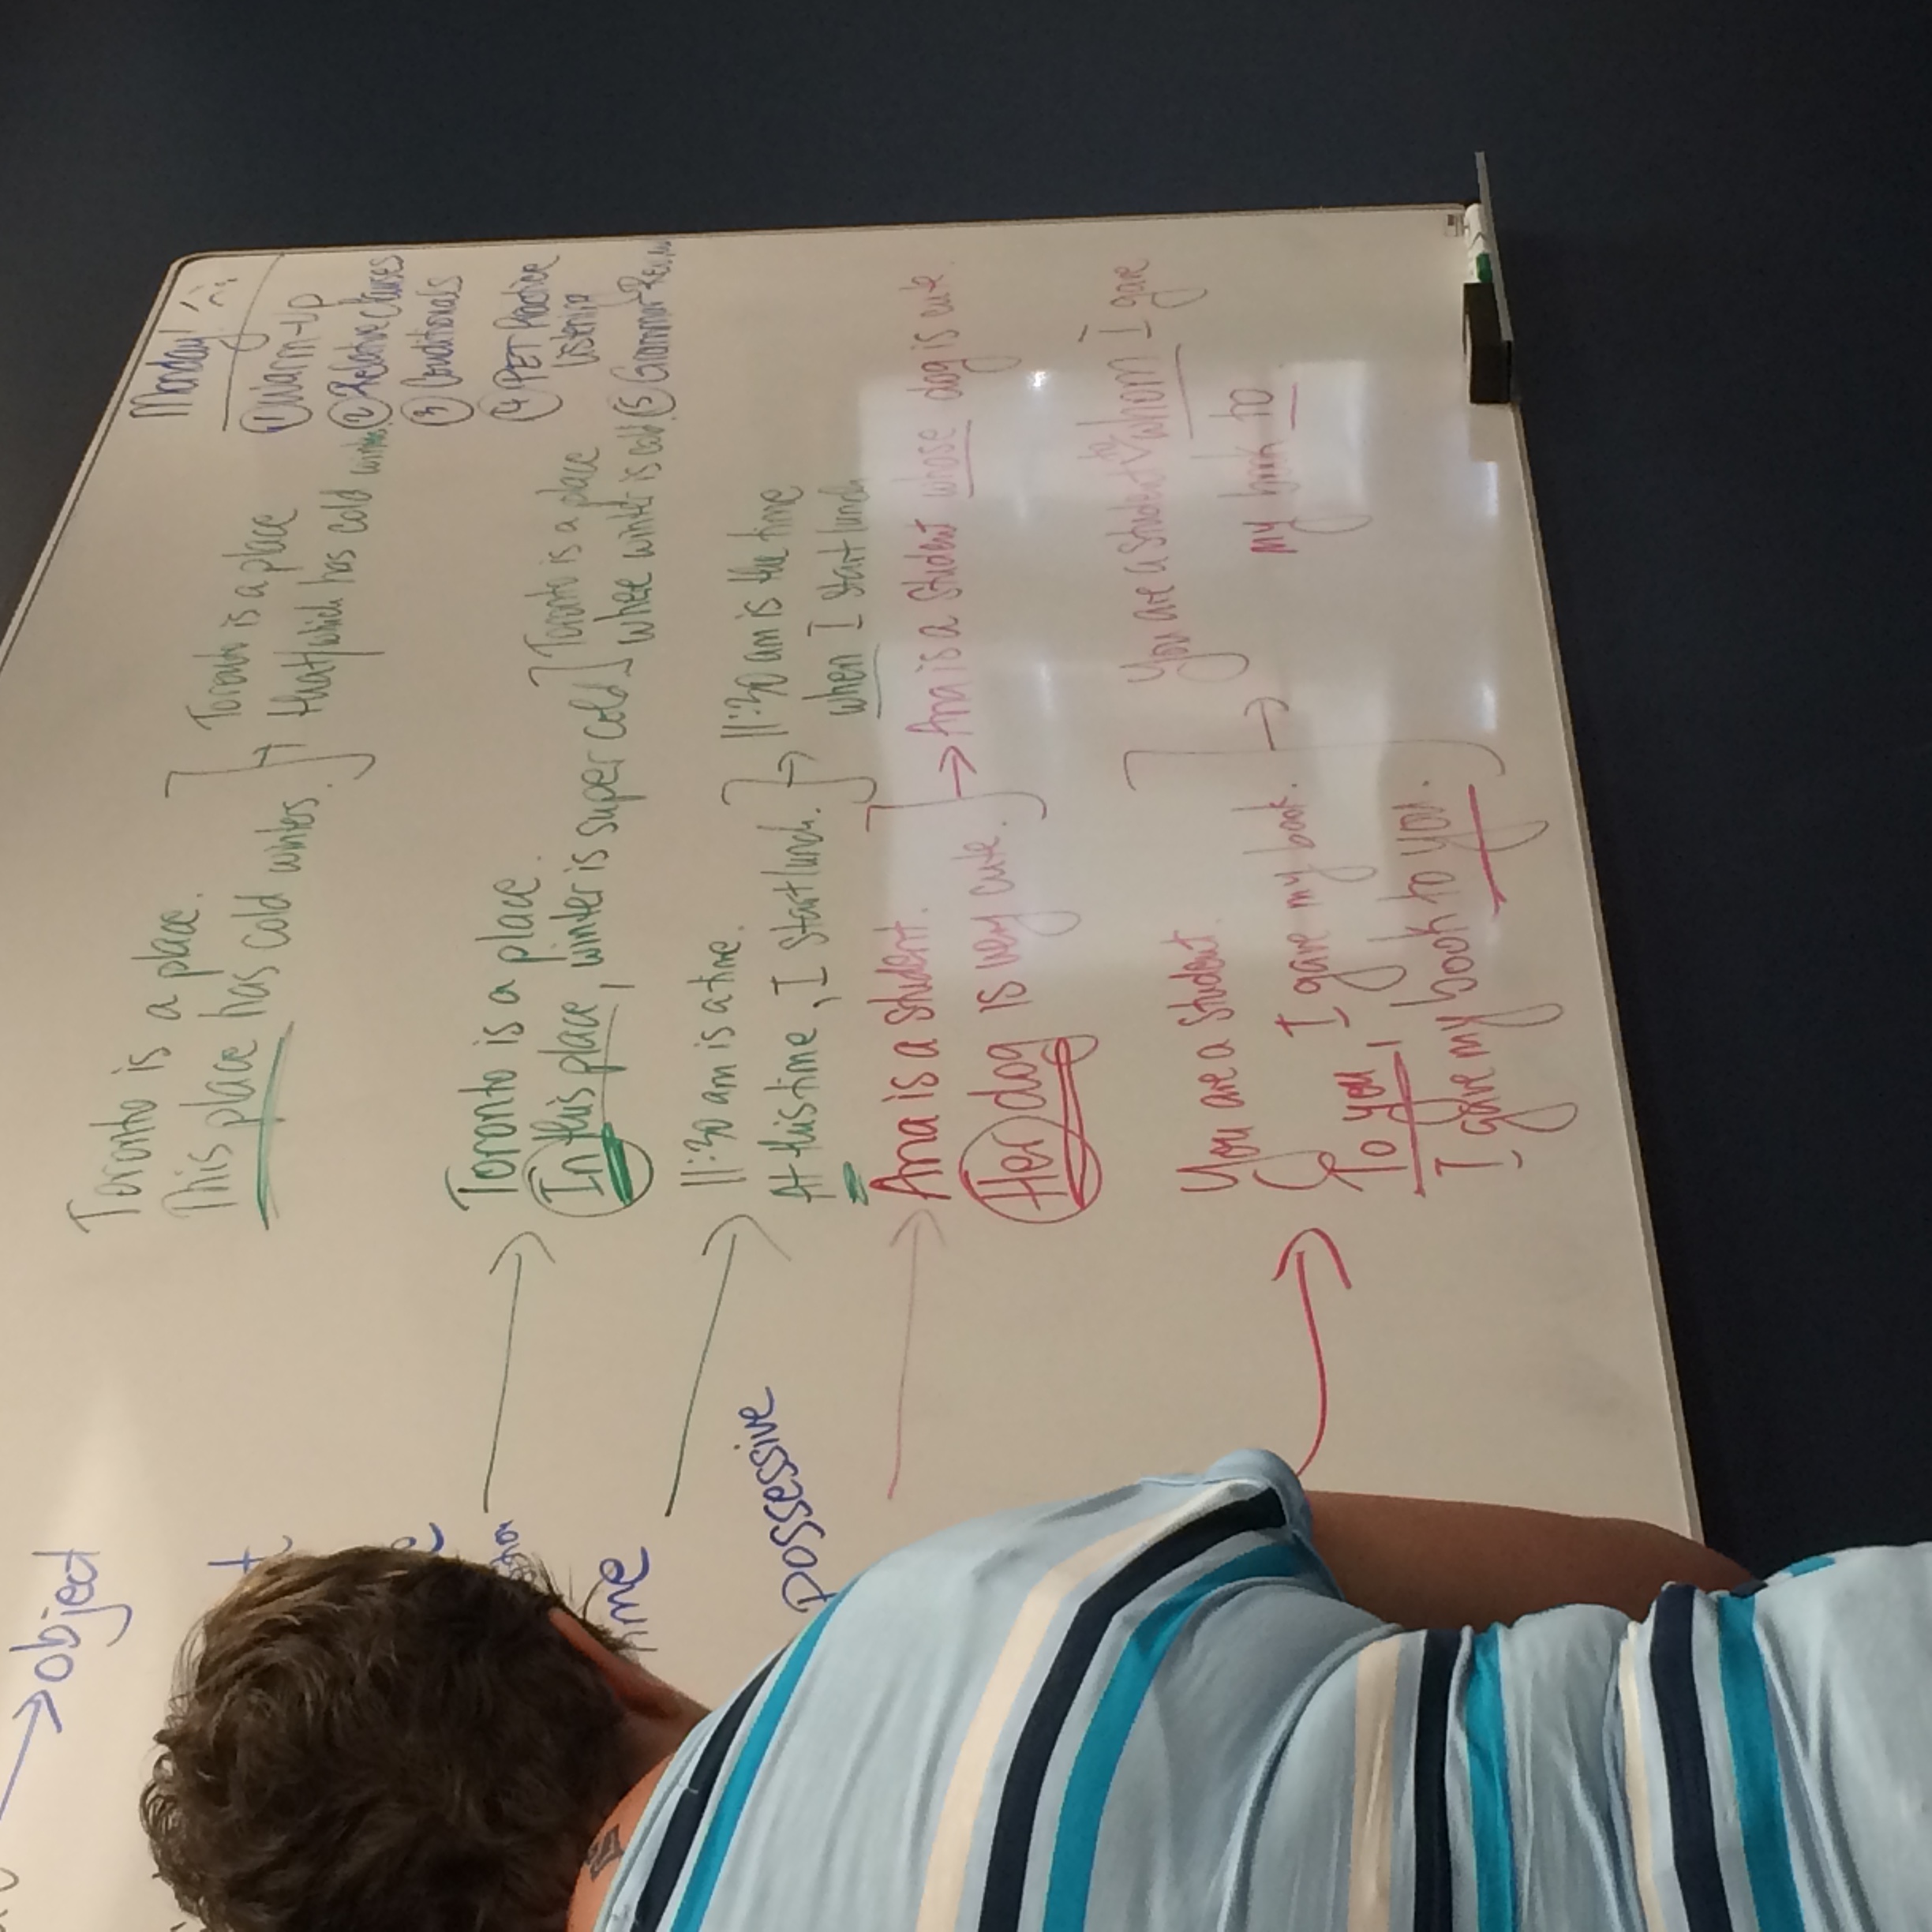 object
Possessive
Toronto is a place.
This place has cold winters.
Toronto is a place
that/which has cold winters.
Toronto is a place.
In this place, winter is super cold
Toronto is a place
where winter is cold.
11:30 am is a time.
At this time, I start lunch.
11:30 am is the time
when I start lunch
Ana is a student.
Her dog is very cute.
Ana is a student whose dog is cute.
You are a student.
I gave my book.
To you,
I gave my book to you.
You are a student to whom I gave
my book to
Monday
① Warm-up
② Relative Clauses
③ Conditionals
④ PET Practice
Listening
⑤ Grammar